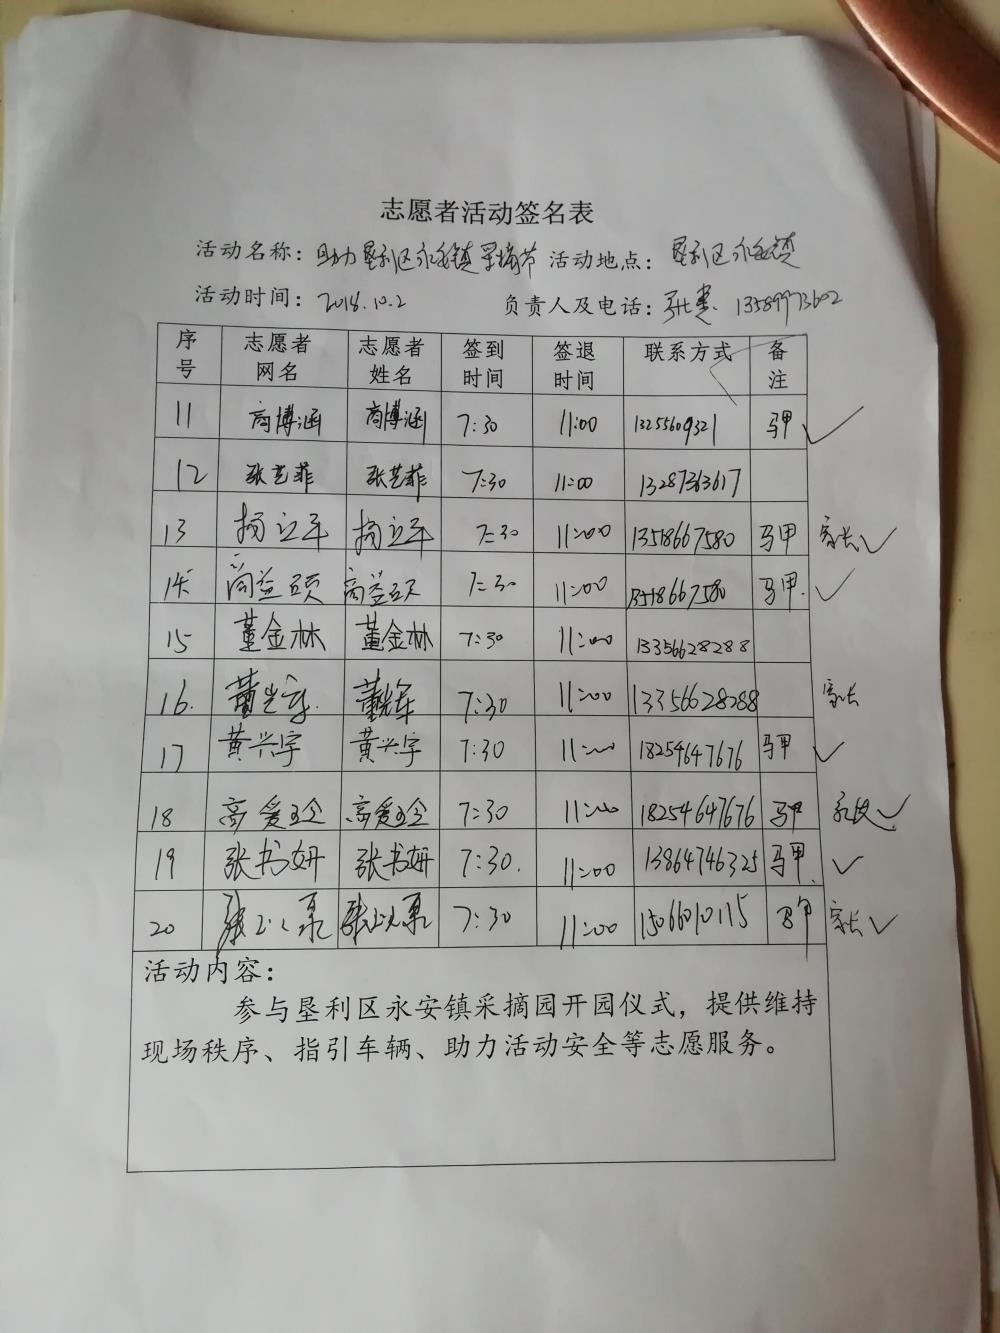 志愿者活动签名表
活动名称：助力垦利区永安镇采摘节 活动地点：垦利区永安镇
活动时间：2018.10.2 负责人及电话：13589973602
序号 志愿者网名 志愿者姓名 签到时间 签退时间 联系方式 备注
11 商博涵 商博涵 7:30 11:00 13255609321 马甲 ✓
12 张艺菲 张艺菲 7:30 11:00 13287363617
13 杨立军 杨立军 7:30 11:00 13518667580 马甲 家长 ✓
14 商益硕 商益硕 7:30 11:00 13518667580 马甲. ✓
15 董金林 董金林 7:30 11:00 13356628288
16. 7:30 11:00 13356628288 家长
17 黄兴宇 黄兴宇 7:30 11:00 18254647676 马甲 ✓
18 高爱玲 高爱玲 7:30 11:00 18254647676 马甲 家长 ✓
19 张书妍 张书妍 7:30. 11:00 13864746325 马甲. ✓
20 7:30 11:00 15066010115 马甲 家长 ✓
活动内容：
参与垦利区永安镇采摘园开园仪式，提供维持
现场秩序、指引车辆、助力活动安全等志愿服务。